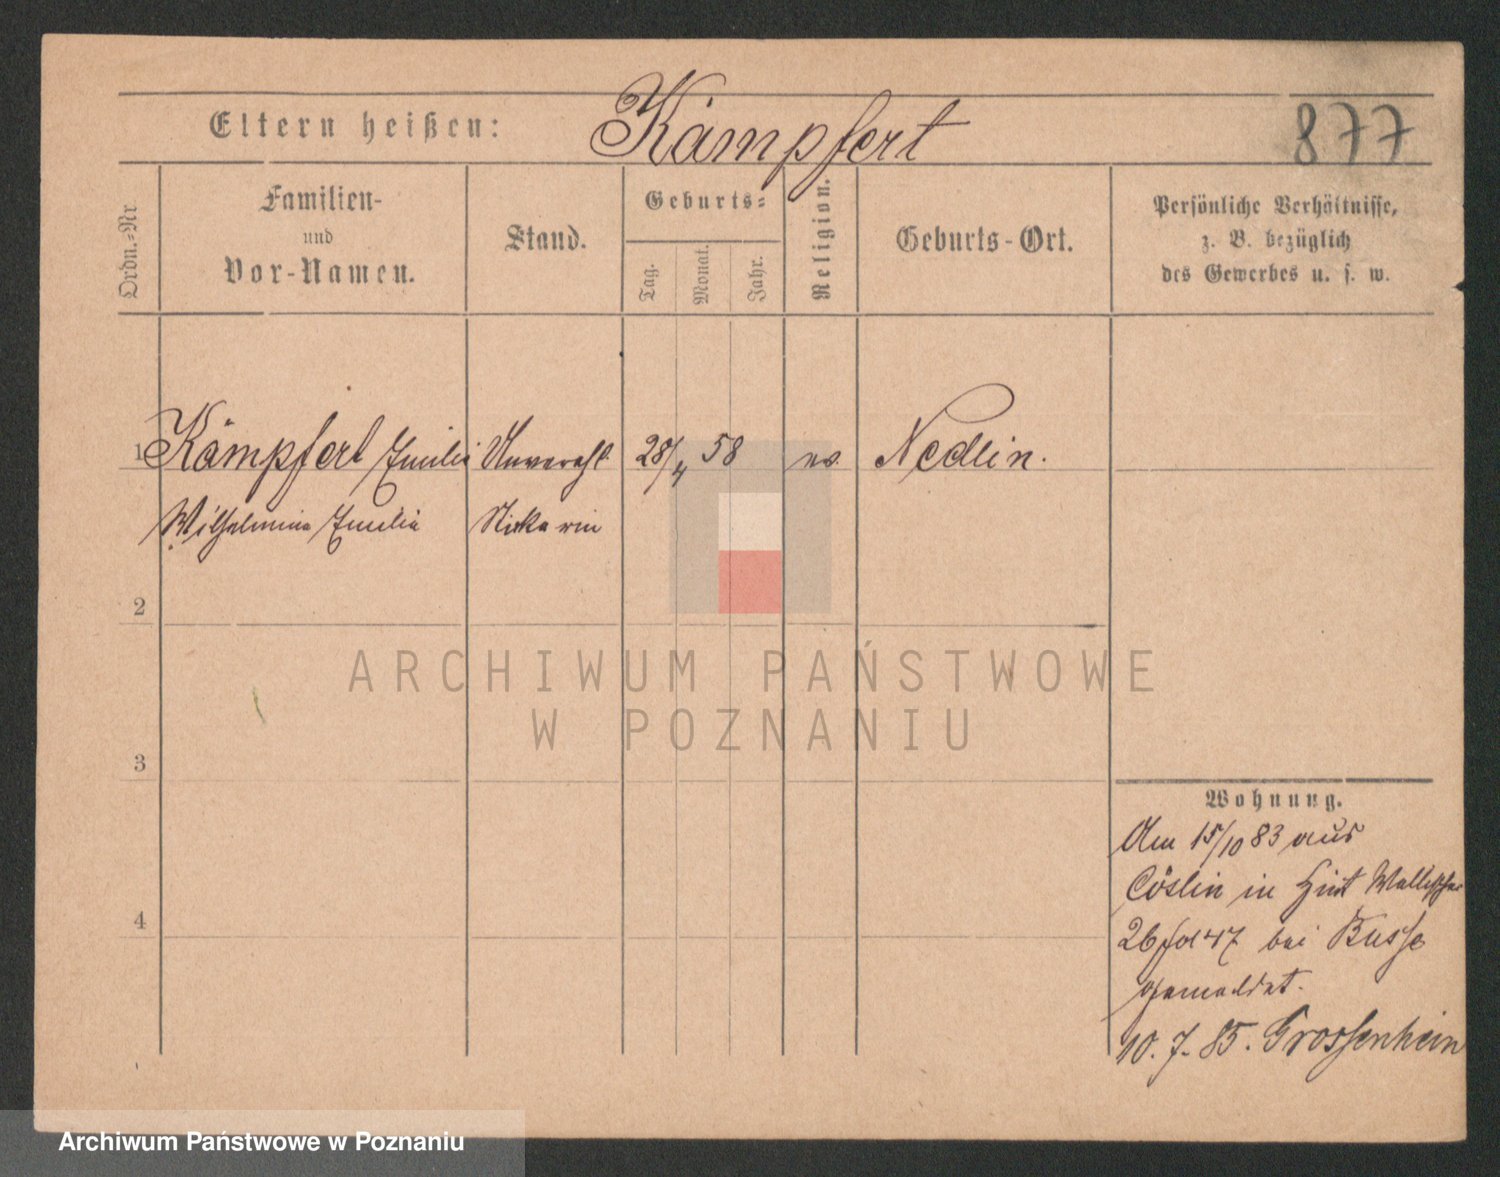 Eltern heißen: Kämpfert 877
Ordn.-Nr
Familien-
und
Vor-Namen.
Stand.
Geburts-
Tag.
Monat.
Jahr.
Religion.
Geburts-Ort.
Persönliche Verhältnisse,
z. B. bezüglich
des Gewerbes u. s. w.
1 Kämpfert Emilie Unverehl 28/4 58 ev. Nedlin.
Wilhelmine Emilie
2
3
4
ARCHIWUM PAŃSTWOWE
W POZNANIU
Wohnung.
Am 15/10 83 aus
Cöslin in Hint Wallischei
26 bei Busse
gemeldet.
10. 7. 85. Grossenhein
Archiwum Państwowe w Poznaniu